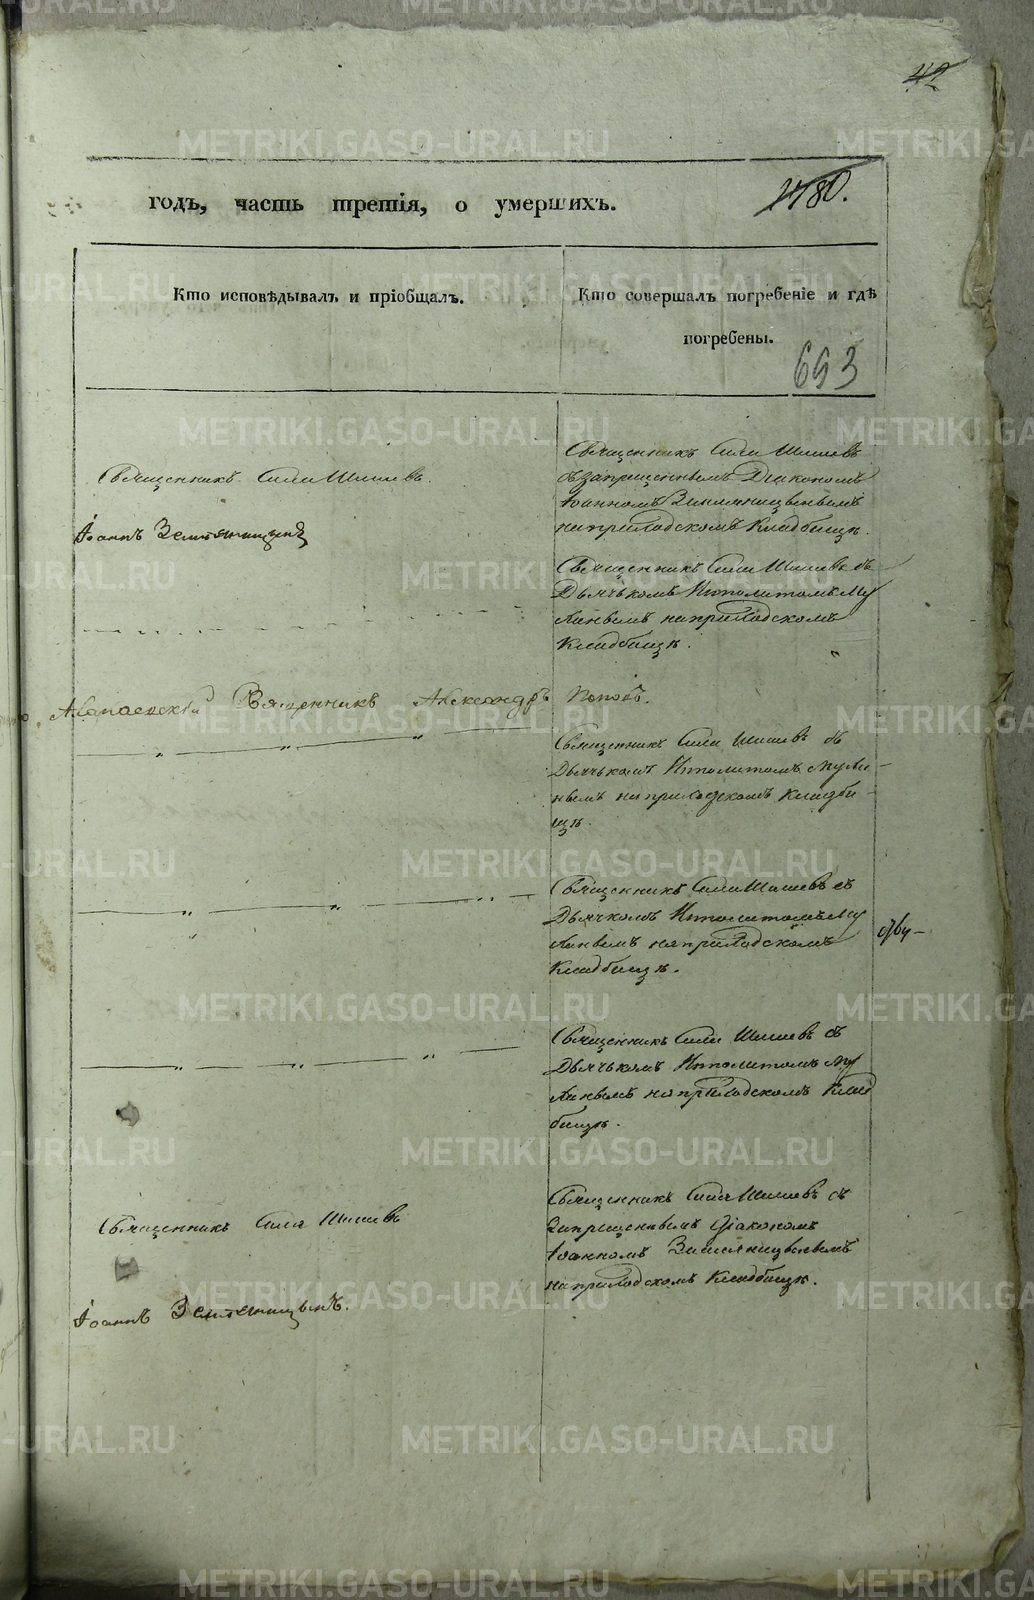 42
годъ, часть третія, о умершихъ.
1780.
Кто исповѣдывалъ и пріобщалъ.
Кто совершалъ погребеніе и гдѣ
погребены.
693
Священникъ Сила Шишевъ
съ запрещеннымъ Діакономъ
Іоанномъ
на приходскомъ Кладбищѣ.
Священникъ Сила Шишевъ.
Іоаннъ Земляницынъ
Священникъ Сила Шишевъ съ
Дьячкомъ Ипполитомъ Му
линымъ на приходскомъ
Кладбищѣ.
Алапаевскій Священникъ Александръ Поповъ.
Священникъ Сила Шишевъ съ
Дьячкомъ Ипполитомъ Мули-
нымъ на приходскомъ кладби-
щѣ.
Священникъ Сила Шишевъ съ
Дьячкомъ Ипполитомъ Му
линымъ на приходскомъ
Кладбищѣ.
Священникъ Сила Шишевъ съ
Дьячкомъ Ипполитомъ Му
линымъ на приходскомъ Клад
бищѣ.
Священникъ Сила Шишевъ
Іоаннъ Земляницынъ.
Священникъ Сила Шишевъ съ
Запрещеннымъ Діакономъ
Іоанномъ
на приходскомъ Кладбищѣ.
METRIKI.GASO-URAL.RU